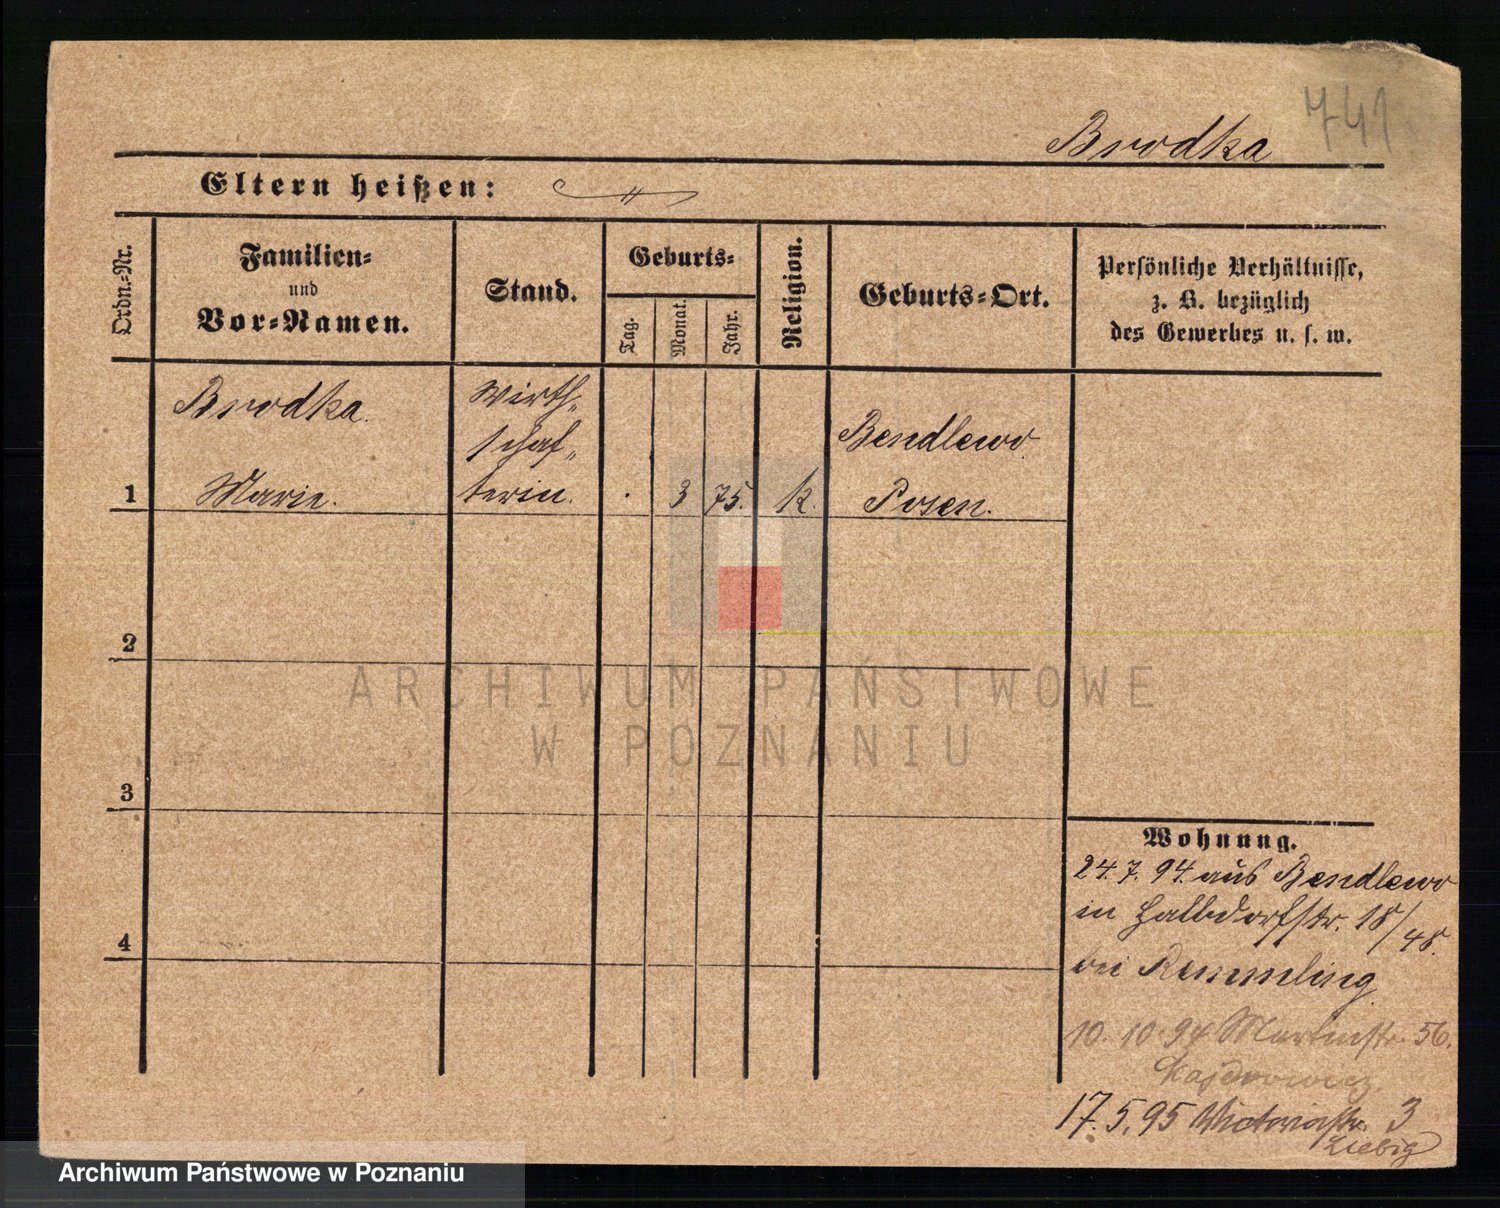 741
Brodka
Eltern heißen:
Ordn.-Nr.
Familien-
und
Vor-Namen.
Stand.
Geburts-
Tag.
Monat.
Jahr.
Religion.
Geburts-Ort.
Persönliche Verhältnisse,
z. B. bezüglich
des Gewerbes u. s. w.
Brodka.
Wirth-
schaf-
Bendlewo
1
Marie.
terin.
3
75.
k.
Posen.
2
ARCHIWUM PAŃSTWOWE
W POZNANIU
3
Wohnung.
24.7.94. aus Bendlewo
in Halbdorfstr. 18/48.
4
bei Remmling
10.10.94 Martinstr. 56.
17.5.95 Victoriastr. 3
Liebig
Archiwum Państwowe w Poznaniu